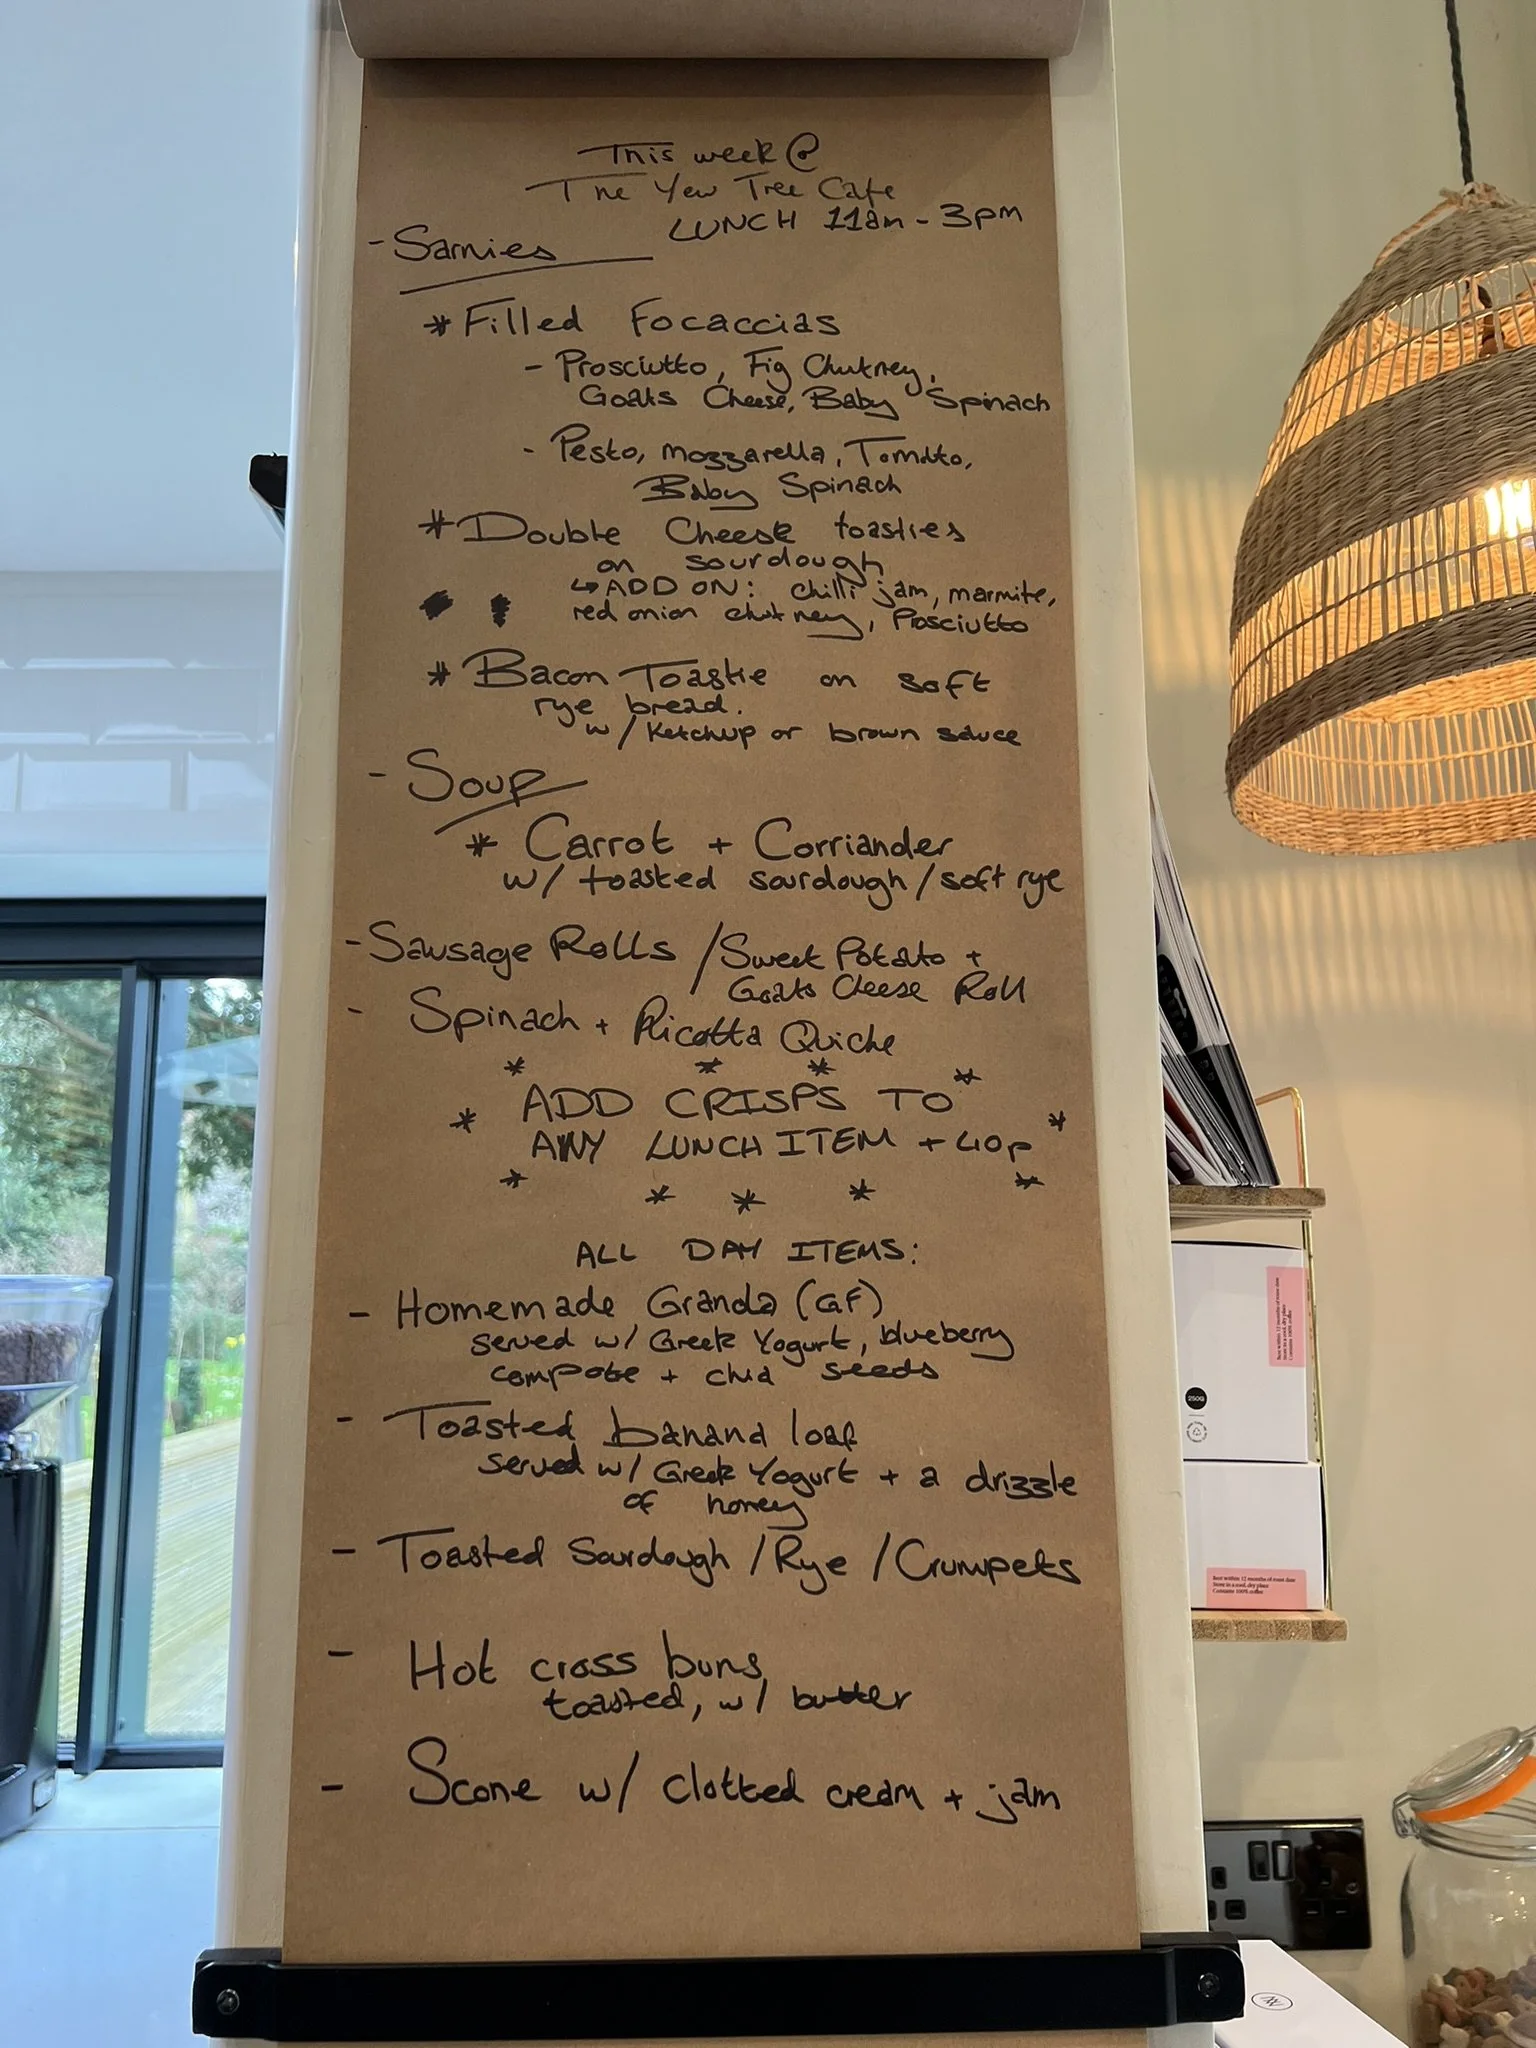 This week @
The Yew Tree Cafe
LUNCH 11am - 3pm
- Sarnies
* Filled Focaccias
- Prosciutto, Fig Chutney,
Goats Cheese, Baby Spinach
- Pesto, mozzarella, Tomato,
Baby Spinach
* Double Cheese toasties
on sourdough
↳ ADD ON: chilli jam, marmite,
red onion chutney, Prosciutto
* Bacon Toastie on soft
rye bread.
w/ Ketchup or brown sauce
- Soup
* Carrot + Corriander
w/ toasted sourdough / soft rye
- Sausage Rolls / Sweet Potato +
Goats Cheese Roll
- Spinach + Ricotta Quiche
* * * *
* ADD CRISPS TO *
ANY LUNCH ITEM + 40p
* * * * *
ALL DAY ITEMS:
- Homemade Granola (GF)
served w/ Greek Yogurt, blueberry
compote + chia seeds
- Toasted banana loaf
served w/ Greek Yogurt + a drizzle
of honey
- Toasted Sourdough / Rye / Crumpets
- Hot cross buns
toasted, w/ butter
- Scone w/ clotted cream + jam
250G
Best within 12 months of roast date
Store in a cool, dry place
Contains 100% coffee
Best within 12 months of roast date
Store in a cool, dry place
Contains 100% coffee